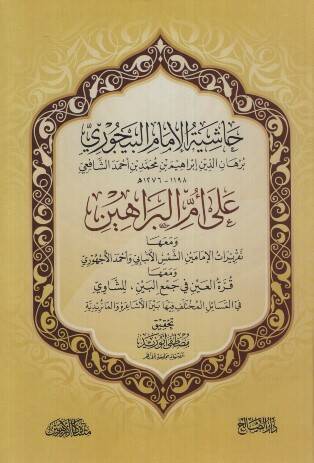 حاشية الإمام البيجوري
برهان الدين إبراهيم بن محمد بن أحمد الشافعي
١١٩٨ - ١٢٧٦ هـ
على أم البراهين
ومعها
تقريرات الإمامين الشمس الأنبابي وأحمد الأجهوري
ومعها
قرة العين في جمع البين ، للشاوي
في المسائل المختلف فيها بين الأشاعرة والماتريدية
تحقيق
مصطفى أبو زيد
دار الصالح